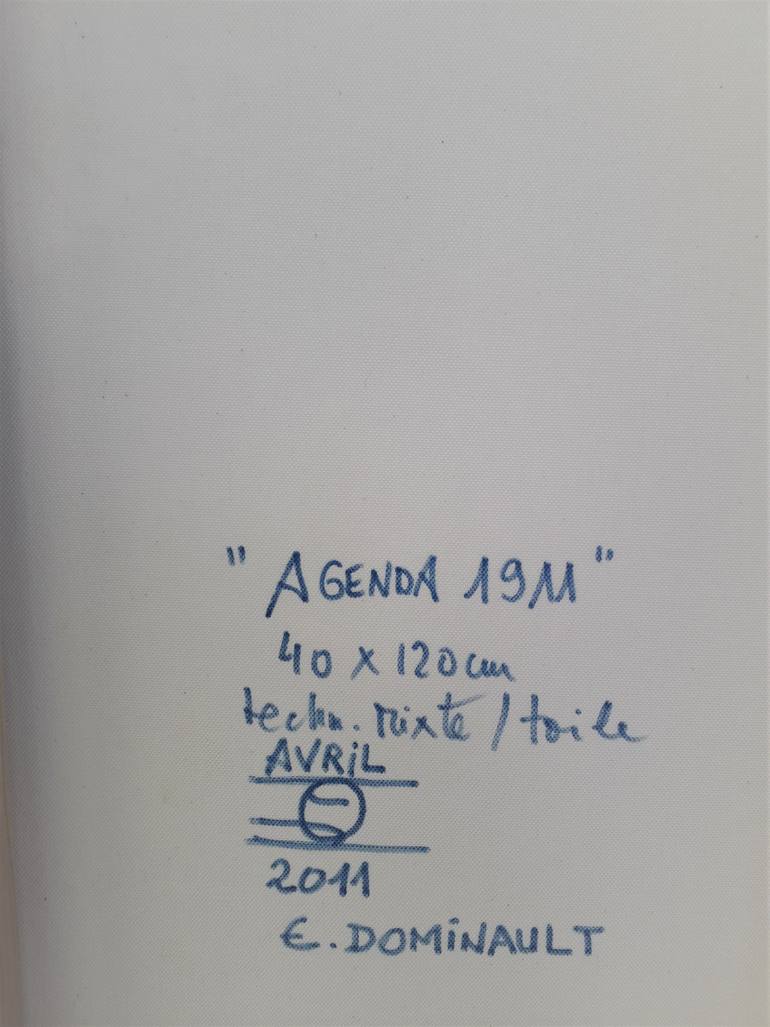 "AGENDA 1911"
40 x 120 cm
techn. mixte / toile
AVRiL
2011
E. DOMiNAULT